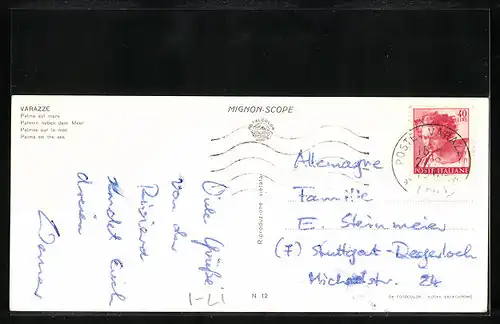 VARAZZE
Palme sul mare
Palmen neben dem Meer
Palmes sur la mer
Palms on the sea
MIGNON-SCOPE
40
LIRE
POSTE ITALIANE
POSTE VARAZZE
Viele Grüße
von der
Riviera
sendet Euch
dreien
Werner
Allemagne
Familie
E. Steinmeier
(7) Stuttgart-Degerloch
Michaelstr. 24
Riproduzione vietata
N 12